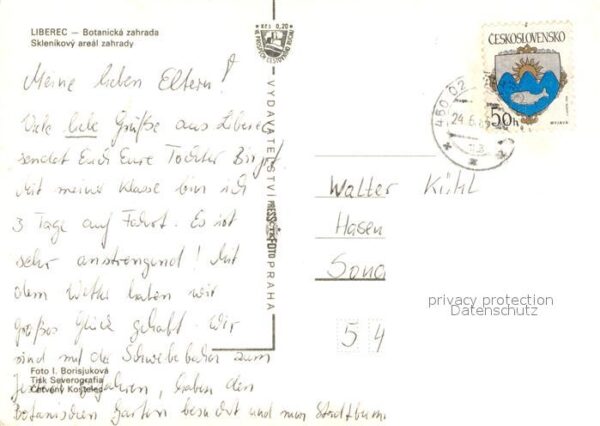 LIBEREC — Botanická zahrada
Skleníkový areál zahrady
Kčs 0,20
Meine lieben Eltern!
Viele liebe Grüße aus Liberec
sendet Euch Eure Tochter
Mit meiner Klasse bin ich
3 Tage auf Fahrt. Es ist
sehr anstrengend! Mit
dem Wetter haben wir
großes Glück gehabt. Wir
sind mit der Schwebebahn zum
gefahren, haben den
Botanischen Garten besucht und nun Stadtbum
Foto I. Borisjuková
Tisk Severografia
Červený Kostelec
VYDAVATELSTVÍ PRESSFOTO PRAHA
ČESKOSLOVENSKO
50h
MYJAVA
460 02
24.6.8
Walter Kühl
Hasen
Sona
54
privacy protection
Datenschutz